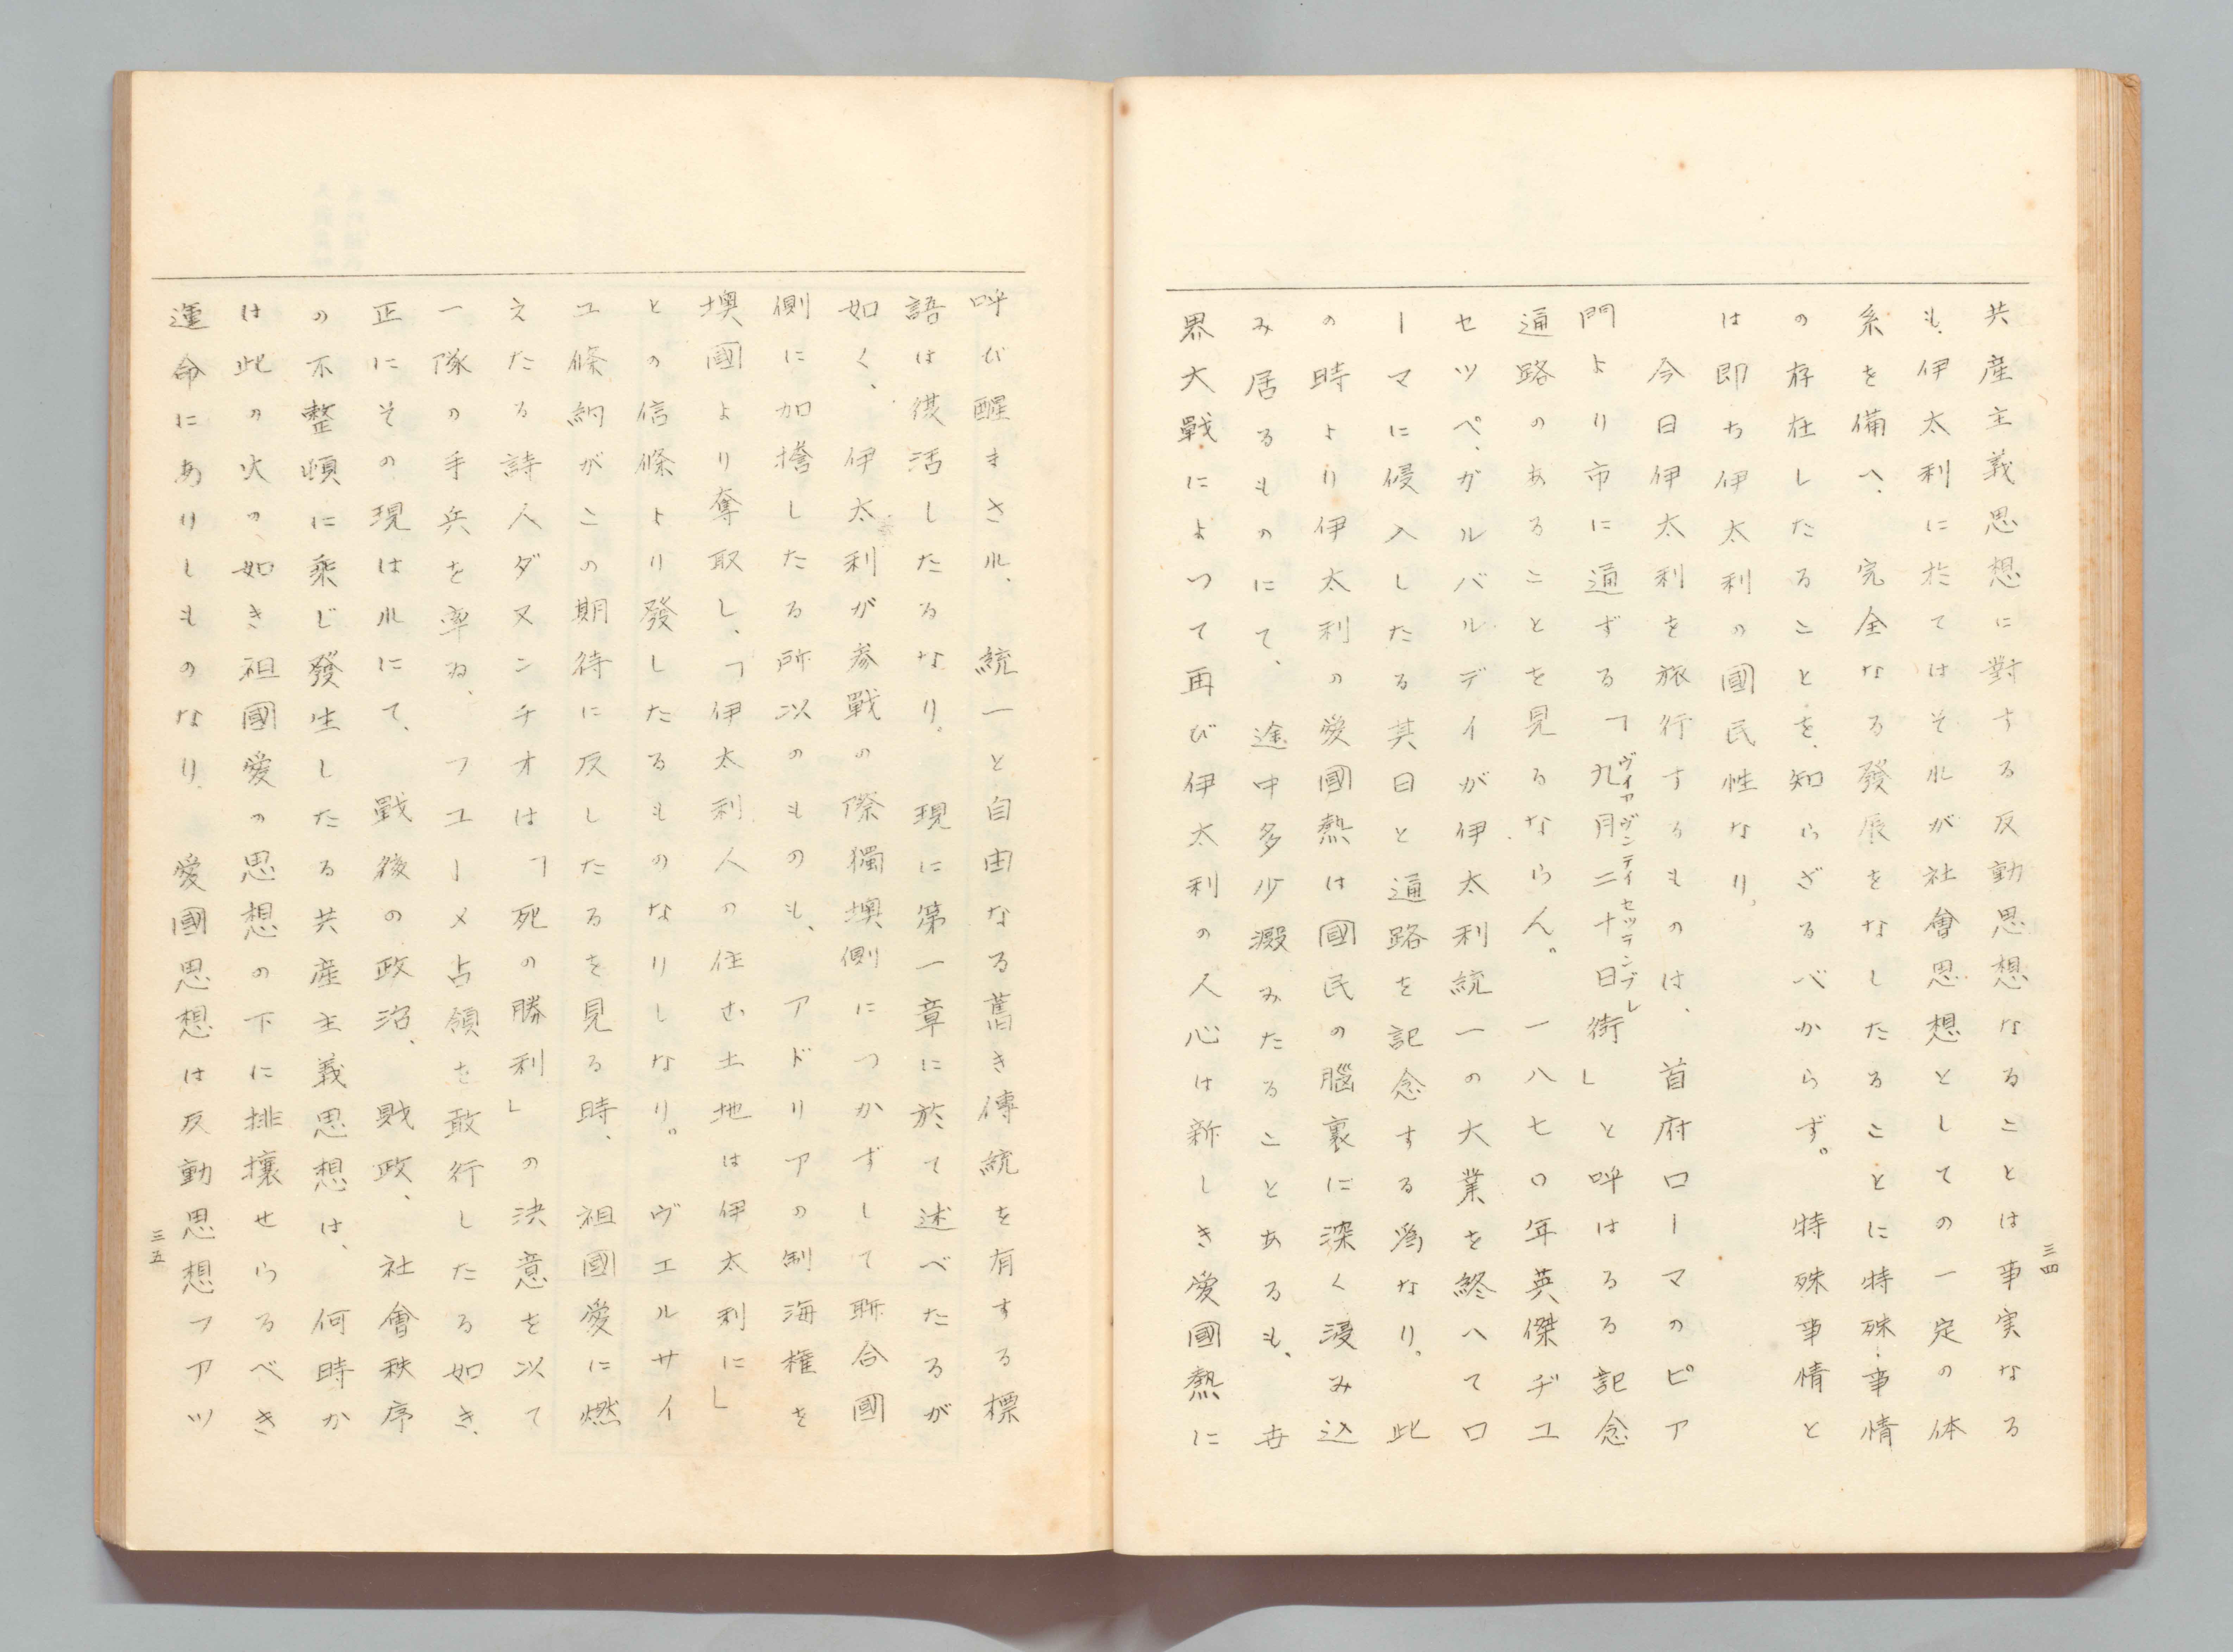 三四
共産主義思想に對する反動思想なることは事実なる
も、伊太利に於てはそれが社會思想としての一定の体
系を備へ、完全なる發展をなしたることに特殊事情
の存在したることを、知らざるべからず。特殊事情と
は即ち伊太利の國民性なり。
今日伊太利を旅行するものは、首府ローマのピア
門より市に通ずる「九月二十日街」と呼はるる記念
ヴイアヴンテイセツテンブレ
通路のあることを見るならん。一八七〇年英傑ヂユ
セツペ、ガルバルデイが伊太利統一の大業を終へてロ
ーマに侵入したる其日と通路を記念する爲なり。此
の時より伊太利の愛國熱は國民の腦裏に深く浸み込
み居るものにて、途中多少澱みたることあるも、世
界大戰によつて再び伊太利の人心は新しき愛國熱に
呼び醒まされ、統一と自由なる舊き傳統を有する標
語は復活したるなり。現に第一章に於て述べたるが
如く、伊太利が参戰の際獨墺側につかずして聯合國
側に加擔したる所以のものも、アドリアの制海権を
墺國より奪取し、「伊太利人の住む土地は伊太利に」
との信條より發したるものなりしなり。ヴエルサイ
ユ條約がこの期待に反したるを見る時、祖國愛に燃
えたる詩人ダヌンチオは「死の勝利」の決意を以て
一隊の手兵を率ゐ、フユーメ占領を敢行したる如き、
正にその現はれにて、戰後の政治、財政、社會秩序
の不整頓に乘じ發生したる共産主義思想は、何時か
は此の火の如き祖國愛の思想の下に排攘せらるべき
運命にありしものなり。愛國思想は反動思想フアツ
三五